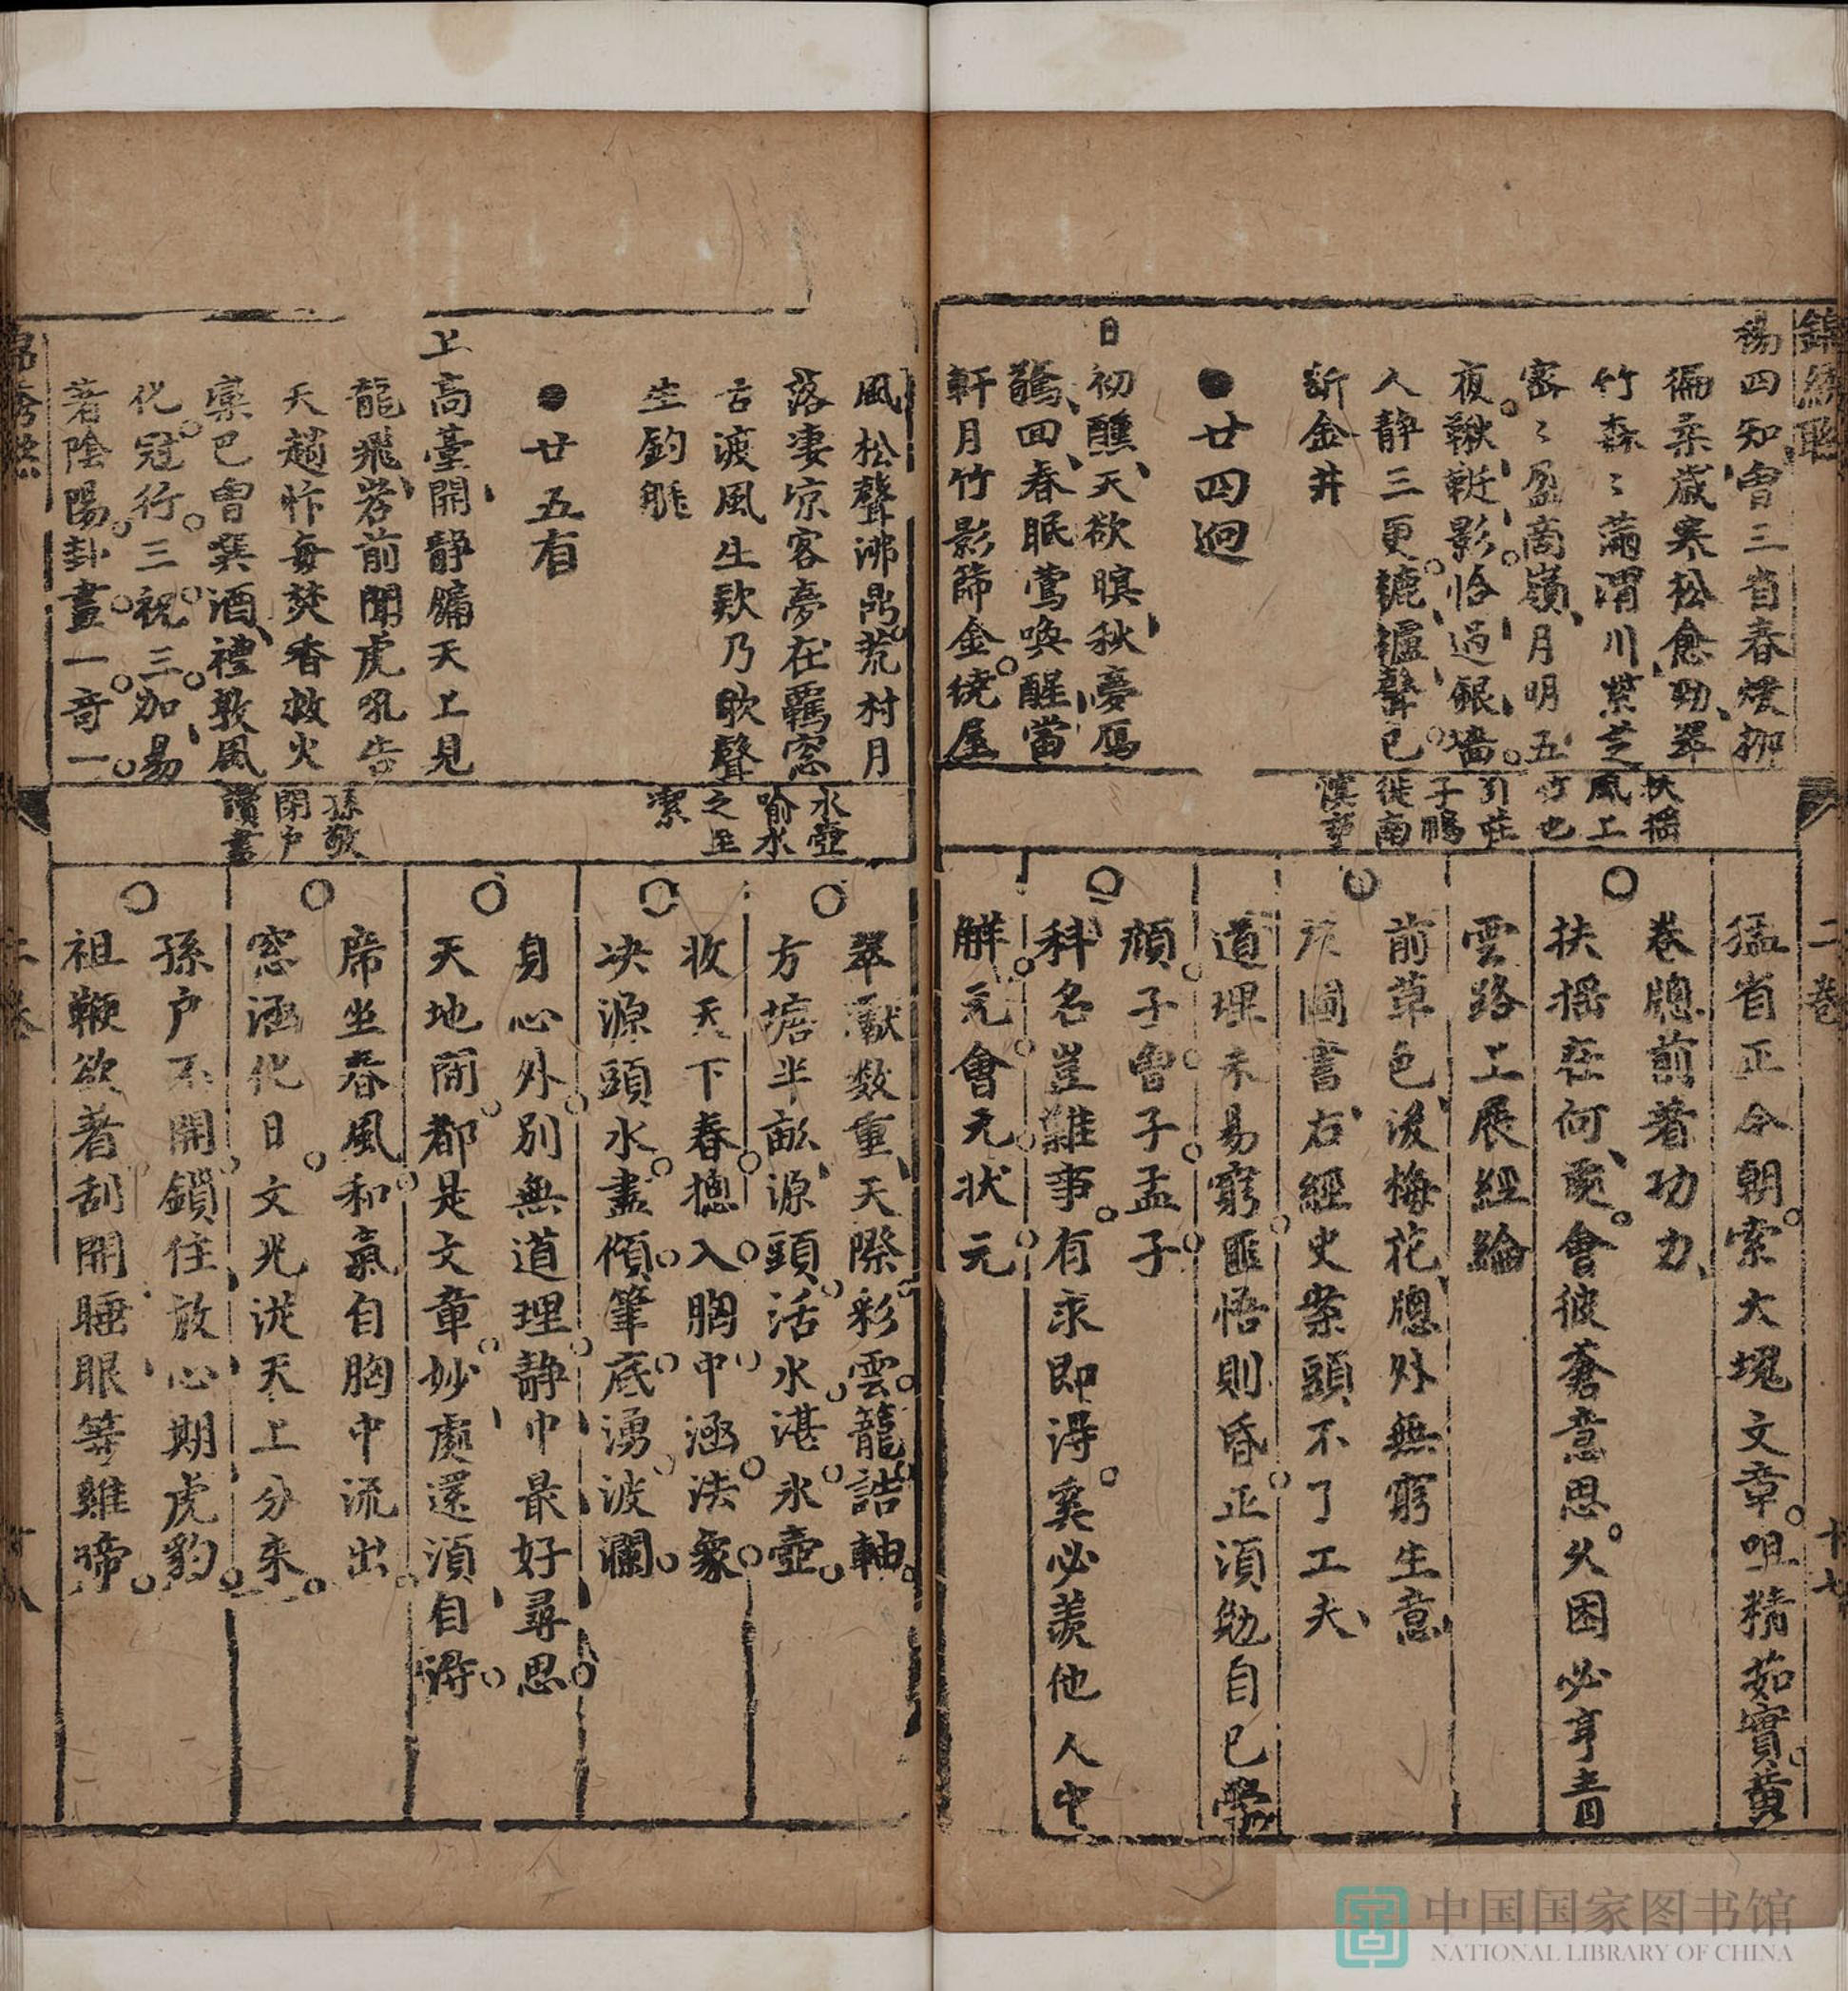 錦繡聯
楊四知曾三省春煖柳
徧柔歲寒松愈勁翠
竹森〻滿渭川紫芝
密〻盈商嶺月明五
夜鞦韆影恰過銀墻
人静三更轆轤聲已
斷金井
●廿四迥
日初醺天欲暝秋夢鴈
驚回春眠鶯喚醒當
軒月竹影篩金繞屋
扶搖
風上
行也
引莊
子鵬
徙南
溟事
二卷
十七
猛省正今朝索大塊文章咀精茹實黄
卷牕前着功力
扶搖在何處會彼蒼意思久困必亨青
雲路上展經綸
前草色後梅花牕外無窮生意
左圖書右經史案頭不了工夫
道理未易窮匪悟則昏正湏勉自已學
顔子曾子孟子
科名豈難事有求即淂奚必羨他人中
觧元會元状元
風松聲沸鼎荒村月
落凄凉客夢在覊窓
古渡風生欵乃歌聲
生釣艇
●廿五有
上高臺開静牖天上見
龍飛岩前聞虎吼告
天趙忭每焚香救火
欒巴曾噀酒禮敦風
化冠行三祝三加易
著陰陽卦畫一竒一
氷壺
喻水
之至
潔
孫敬
閉户
讀書
翠獻数重天際彩雲籠誥軸
方塘半畝源頭活水湛氷壺
收天下春摠入胸中涵法象
决源頭水盡傾筆底湧波瀾
身心外别無道理静中最好尋思
天地間都是文章妙處還湏自淂
席坐春風和氣自胸中流出
窓涵化日文光從天上分來
孫户不開鎖住放心期虎豹
祖鞭欲著刮開睡眼等雞啼
中国国家图书馆
NATIONAL LIBRARY OF CHINA